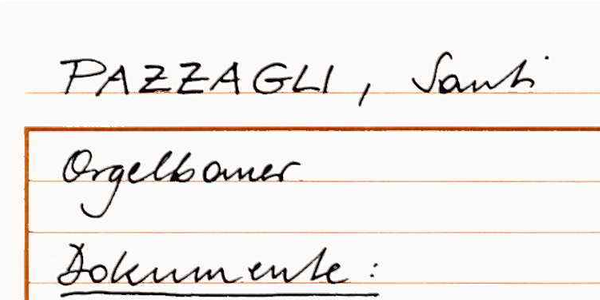 PAZZAGLI, Santi
Orgelbauer
Dokumente: